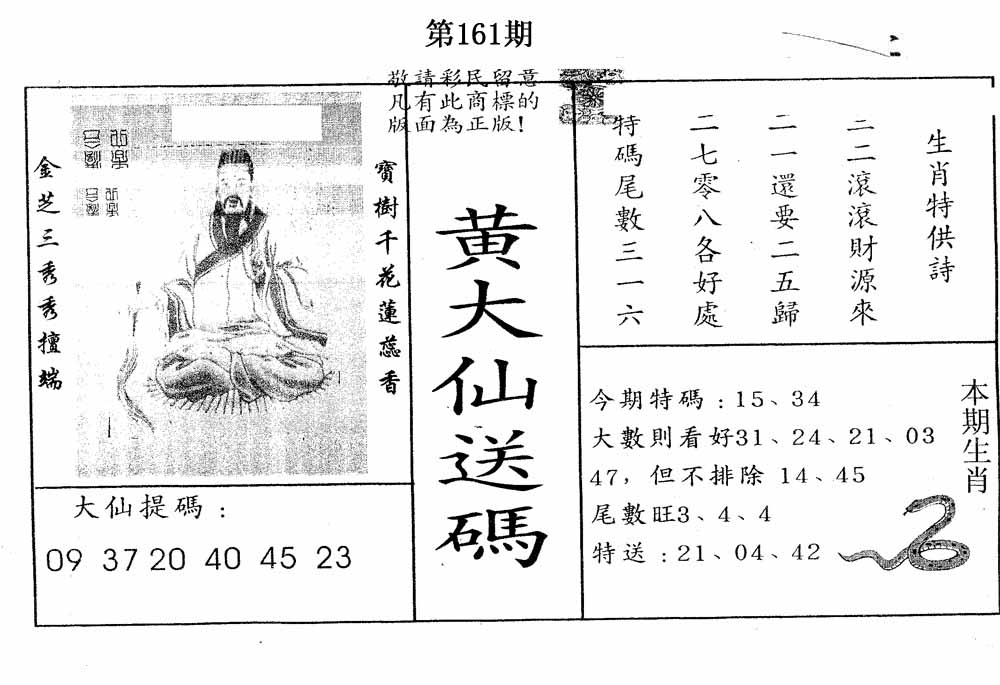 第161期
敬請彩民留意
凡有此商標的
版面為正版!
寶樹千花蓮蕊香
金芝三秀秀擅端
大仙提碼：
09 37 20 40 45 23
黃大仙送碼
生肖特供詩
二二滾滾財源來
二一還要二五歸
二七零八各好處
特碼尾數三一六
本期生肖
今期特碼：15、34
大數則看好31、24、21、03
47，但不排除 14、45
尾數旺3、4、4
特送：21、04、42